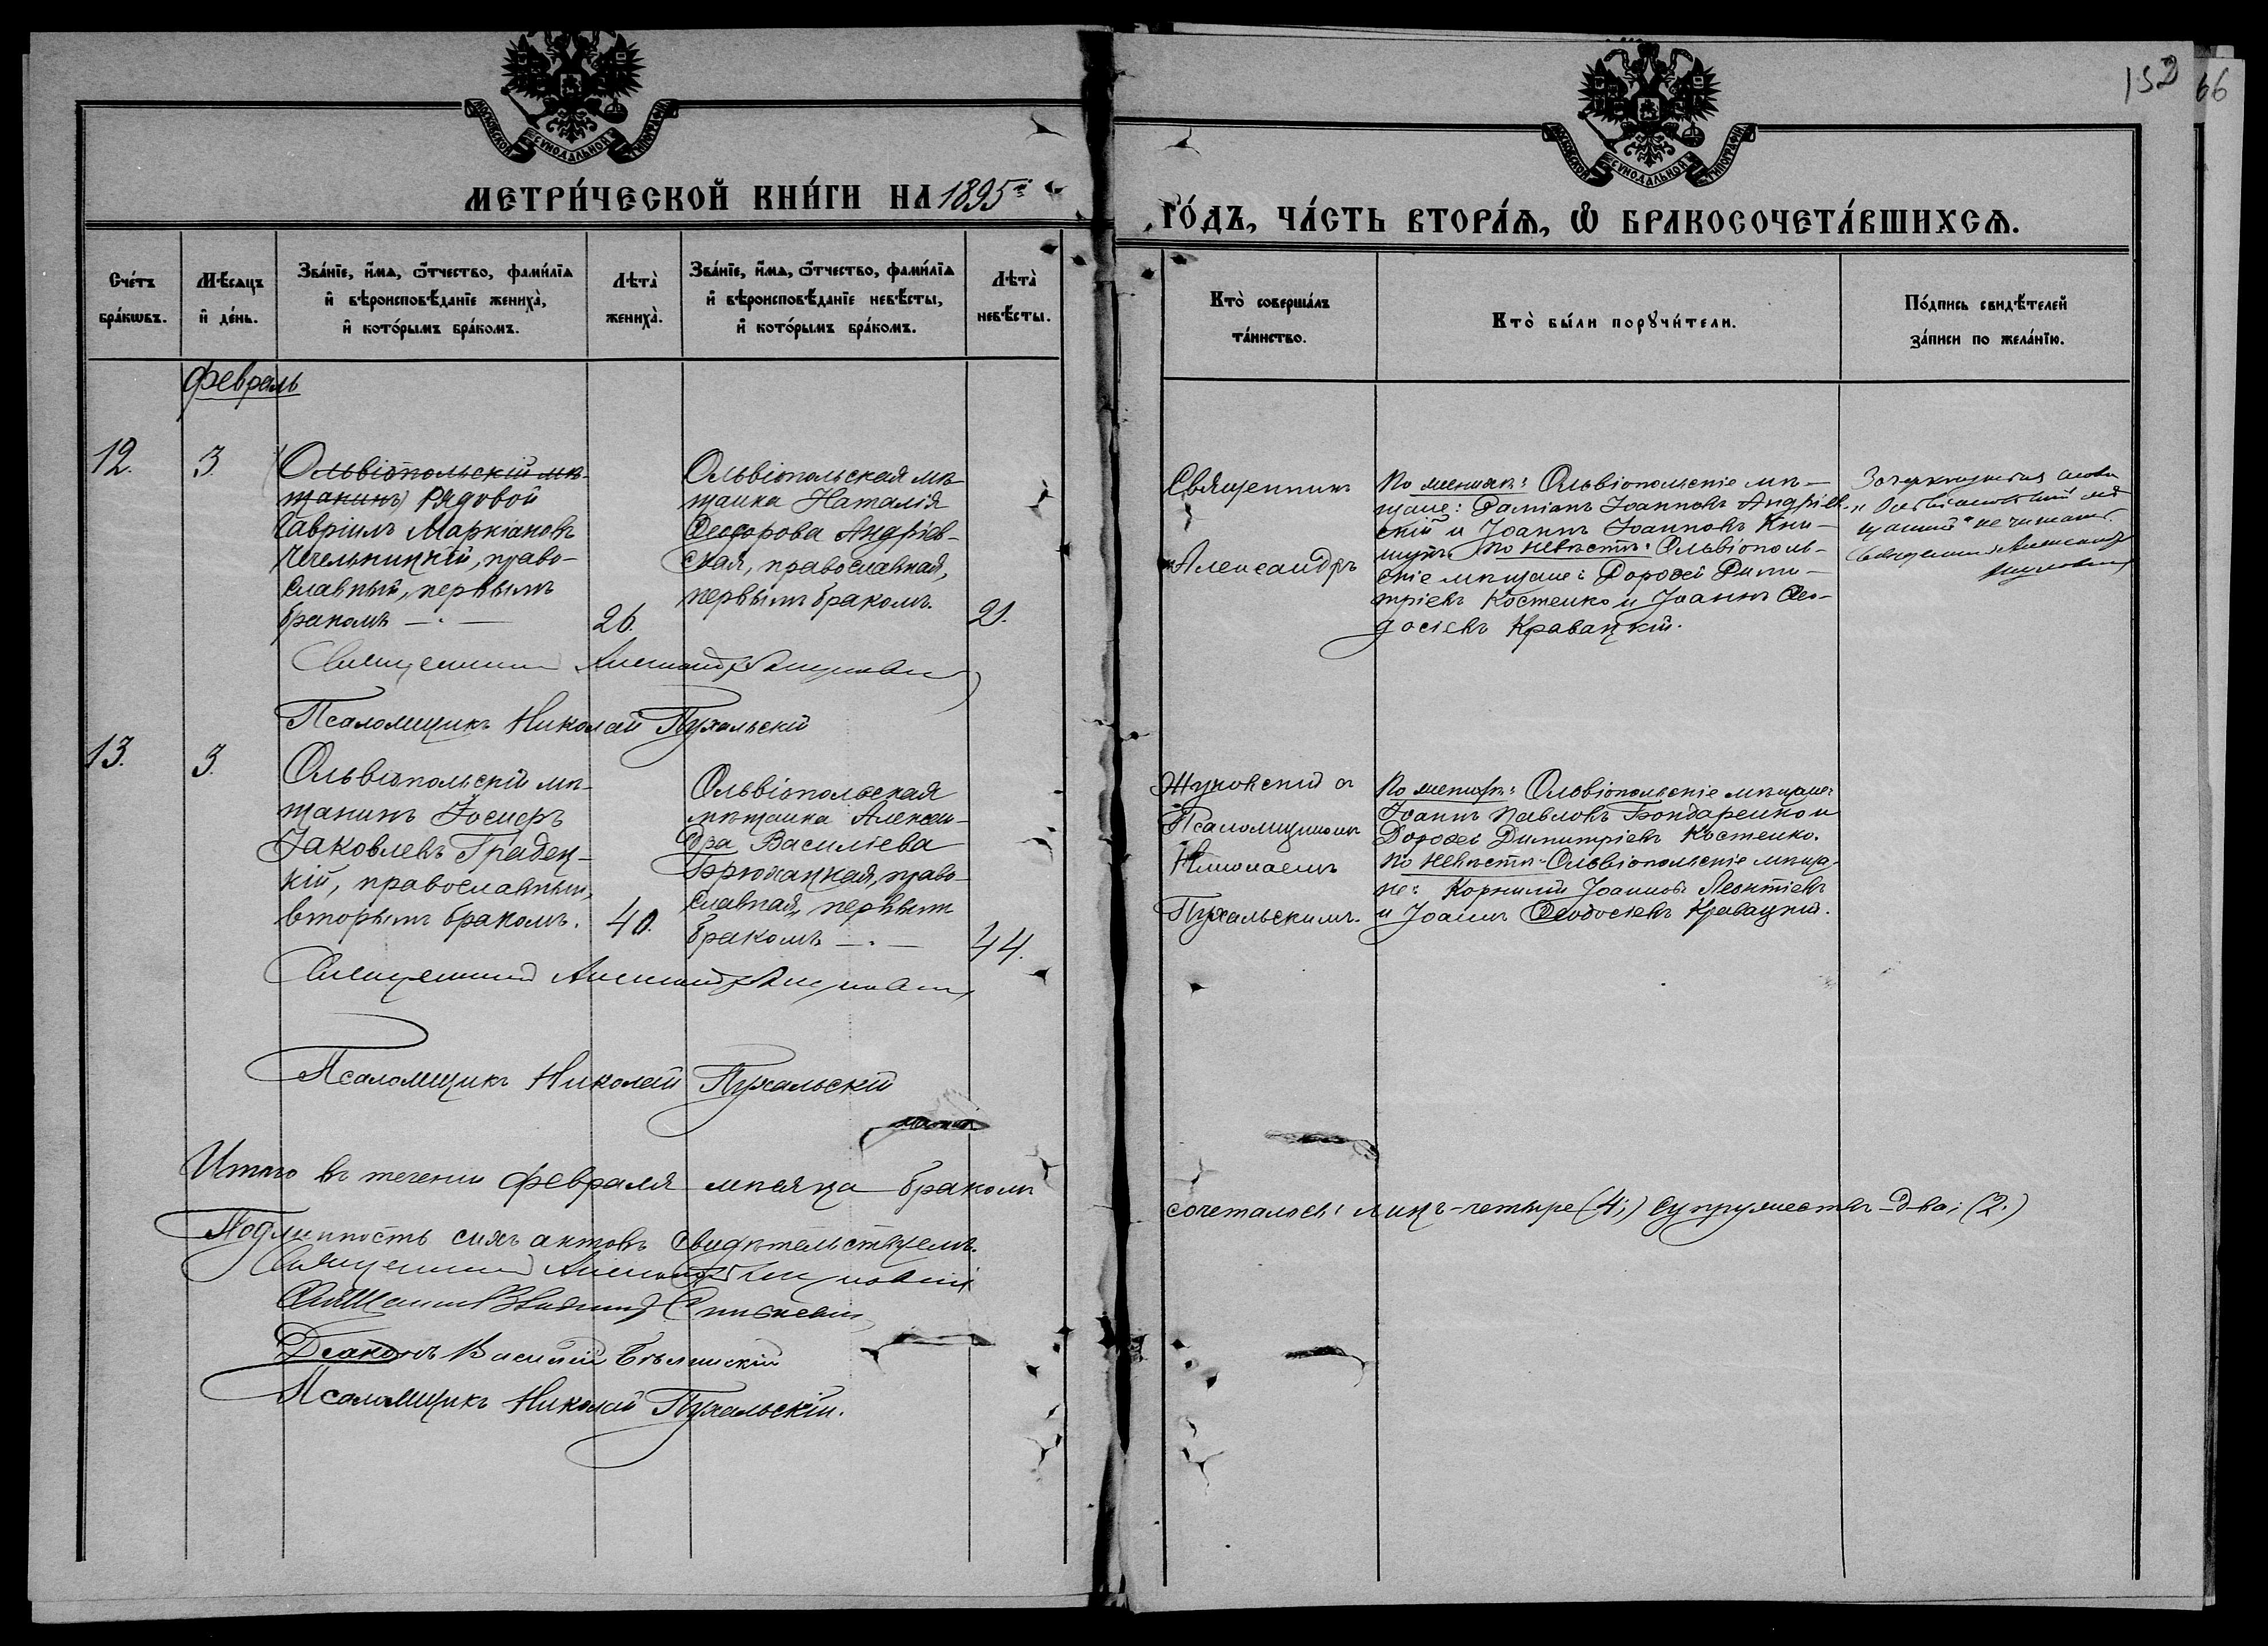 152 66
МОСКОВСКОЙ СѴНОДАЛЬНОЙ ТИПОГРАФІИ
МОСКОВСКОЙ СѴНОДАЛЬНОЙ ТИПОГРАФІИ
МЕТРИ́ЧЕСКОЙ КНИ́ГИ НА 1895й
ГО́ДЪ, ЧА́СТЬ ВТОРА́Ѧ, Ѽ БРАКОСОЧЕТА́ВШИХСѦ.
Сче́тъ
бра́кѡвъ.
Мѣ́сѧцъ
и҆ де́нь.
Зва́нїе, и҆́мѧ, ѻ҆́тчество, фами́лїѧ
и҆ вѣроисповѣ́данїе жениха̀,
и҆ кото́рымъ бра́комъ.
Лѣта̀
жениха̀.
Зва́нїе, и҆́мѧ, ѻ҆́тчество, фами́лїѧ
и҆ вѣроисповѣ́данїе невѣ́сты,
и҆ кото́рымъ бра́комъ.
Лѣта̀
невѣ́сты.
Кто̀ соверша́лъ
та́инство.
Кто̀ бы́ли порꙋчи́тели.
По́дпись свидѣ́телей
за́писи по жела́нїю.
Февраль
12.
3.
Ольвіопольскій мѣ-
щанинъ) Рядовой
Гавріилъ Маркіановъ
Чечельницкій, право-
славный, первымъ
бракомъ —.—
26.
Ольвіопольская мѣ-
щанка Наталія
Ѳеодорова Андріев-
ская, православная,
первымъ бракомъ.
21.
Священникъ
Александръ
По женихѣ: Ольвіопольскіе мѣ-
щане: Даміанъ Іоанновъ Андріев-
скій и Іоаннъ Іоанновъ Кни-
по невѣстѣ: Ольвіополь-
скіе мѣщане: Дороѳей Дими-
тріевъ Костенко и Іоаннъ Ѳео-
досіевъ Кравацкій.
Зачеркнутыя слова
"Ольвіопольскій мѣ
щанинъ" не читать.
Священникъ Александръ
Жуковскій
Священникъ Александръ Жуковскій
Псаломщикъ Николай Пухальскій
13.
3.
Ольвіопольскій мѣ-
щанинъ Іосифъ
Іаковлевъ Градец-
кій, православный,
вторымъ бракомъ.
40.
Ольвіопольская
мѣщанка Алексан-
дра Василіева
Брюхацкая, право-
славная, первымъ
бракомъ —.—
44.
Жуковскій съ
Псаломщикомъ
Николаемъ
Пухальскимъ.
По женихѣ: Ольвіопольскіе мѣщане:
Іоаннъ Павловъ Бондаренко и
Дороѳей Димитріевъ Костенко.
По невѣстѣ: Ольвіопольскіе мѣща-
не: Корнилій Іоанновъ Леонтіевъ
и Іоаннъ Ѳеодосіевъ Кравацкій.
Священникъ Александръ Жуковскій
Псаломщикъ Николай Пухальскій
Итого въ теченіи февраля мѣсяца бракомъ
сочеталось: лицъ-четыре (4;) супружествъ-два; (2.)
Подлинность сихъ актовъ свидѣтельствуемъ.
Священникъ Александръ Жуковскій
Діаконъ Василій Бѣлинскій
Псаломщикъ Николай Пухальскій.